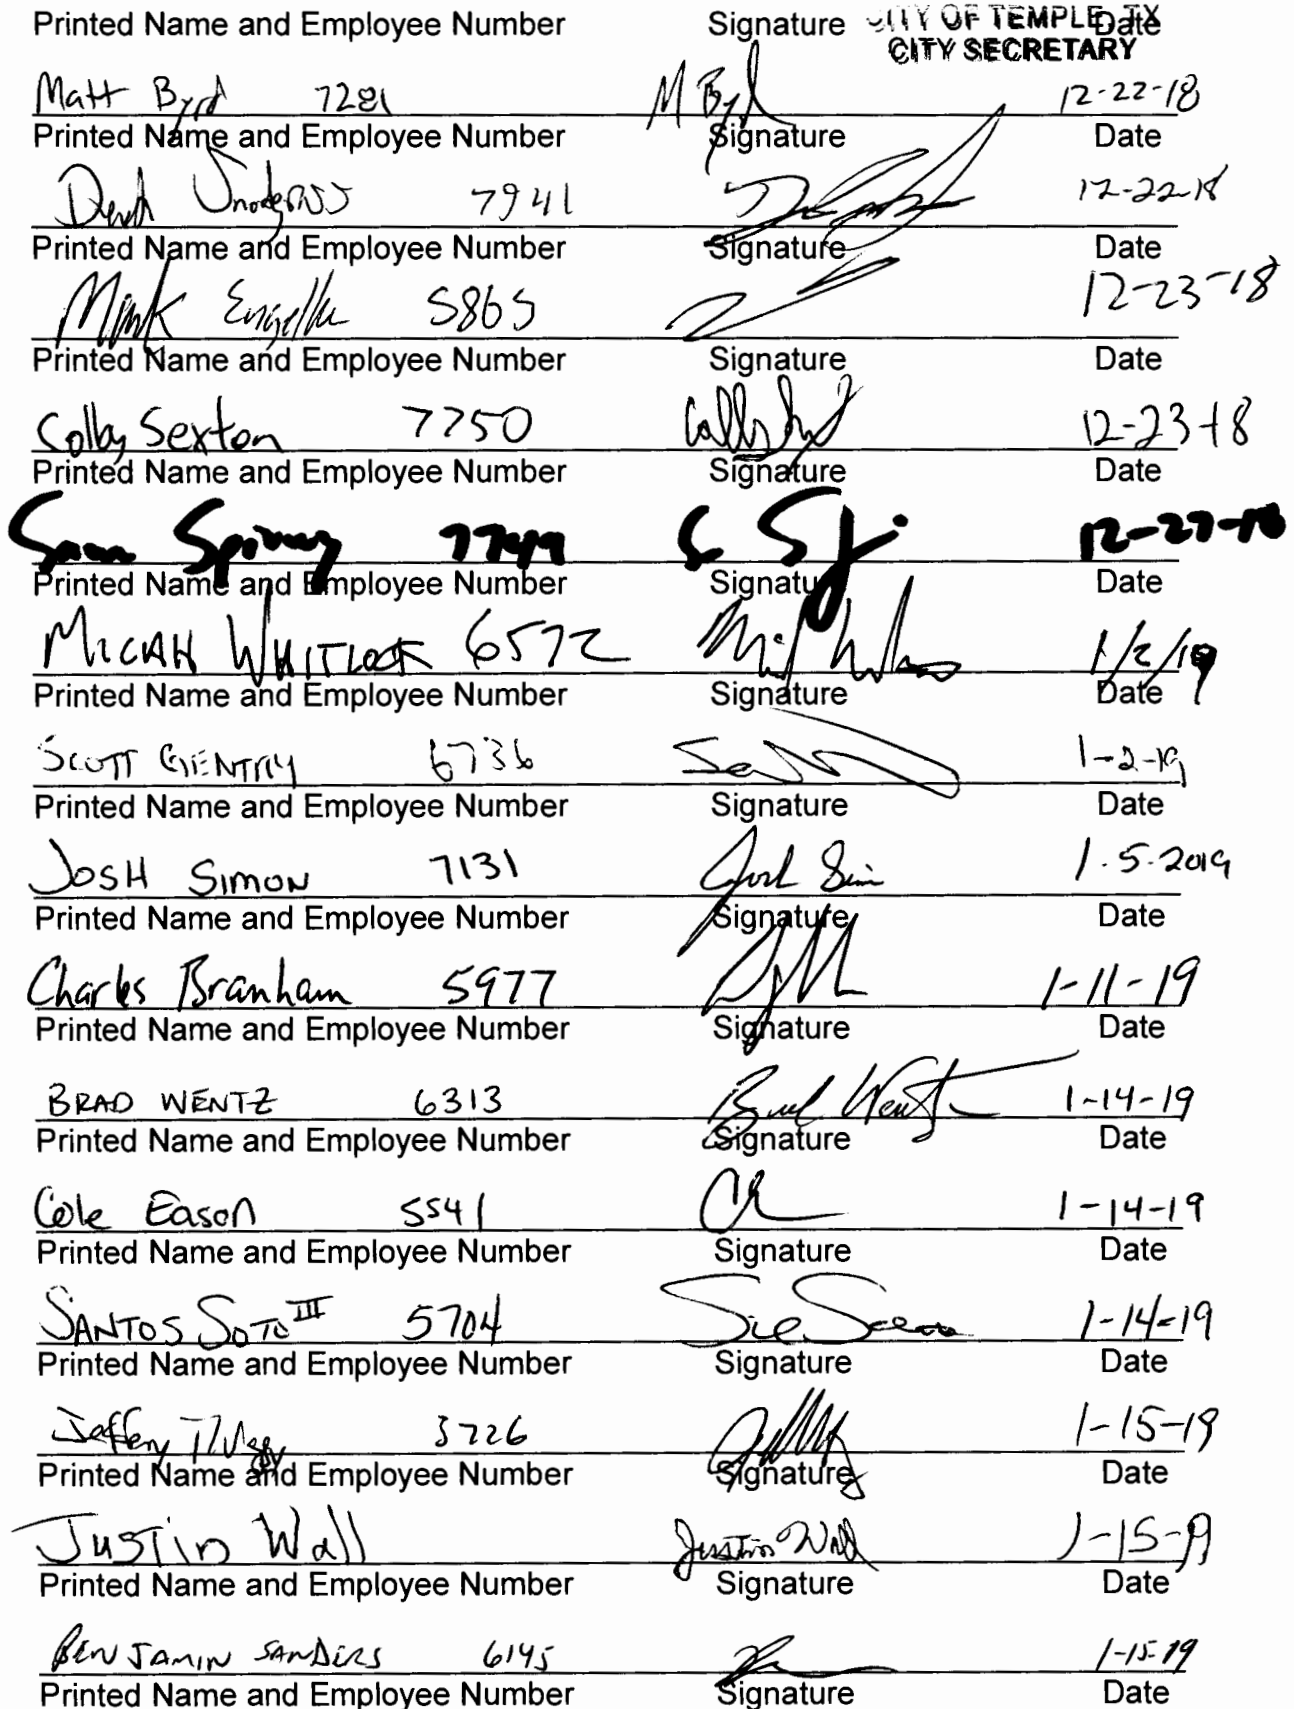 Printed Name and Employee Number Signature Date
CITY OF TEMPLE, TX
CITY SECRETARY
Matt Byrd 7281 M Byrd 12-22-18
Printed Name and Employee Number Signature Date
Derek Snodgrass 7941 12-22-18
Printed Name and Employee Number Signature Date
Mark Engelke 5865 12-23-18
Printed Name and Employee Number Signature Date
Colby Sexton 7750 12-23-18
Printed Name and Employee Number Signature Date
Sam Spivey 7749 12-27-18
Printed Name and Employee Number Signature Date
MICAH WHITLOCK 6572 1/2/19
Printed Name and Employee Number Signature Date
SCOTT GENTRY 6736 1-2-19
Printed Name and Employee Number Signature Date
JOSH SIMON 7131 Josh Simon 1.5.2019
Printed Name and Employee Number Signature Date
Charles Branham 5977 1-11-19
Printed Name and Employee Number Signature Date
BRAD WENTZ 6313 Brad Wentz 1-14-19
Printed Name and Employee Number Signature Date
Cole Eason 5541 1-14-19
Printed Name and Employee Number Signature Date
SANTOS SOTO III 5704 1-14-19
Printed Name and Employee Number Signature Date
Jeffery 3726 1-15-19
Printed Name and Employee Number Signature Date
Justin Wall Justin Wall 1-15-19
Printed Name and Employee Number Signature Date
BENJAMIN SANDERS 6145 1-15-19
Printed Name and Employee Number Signature Date